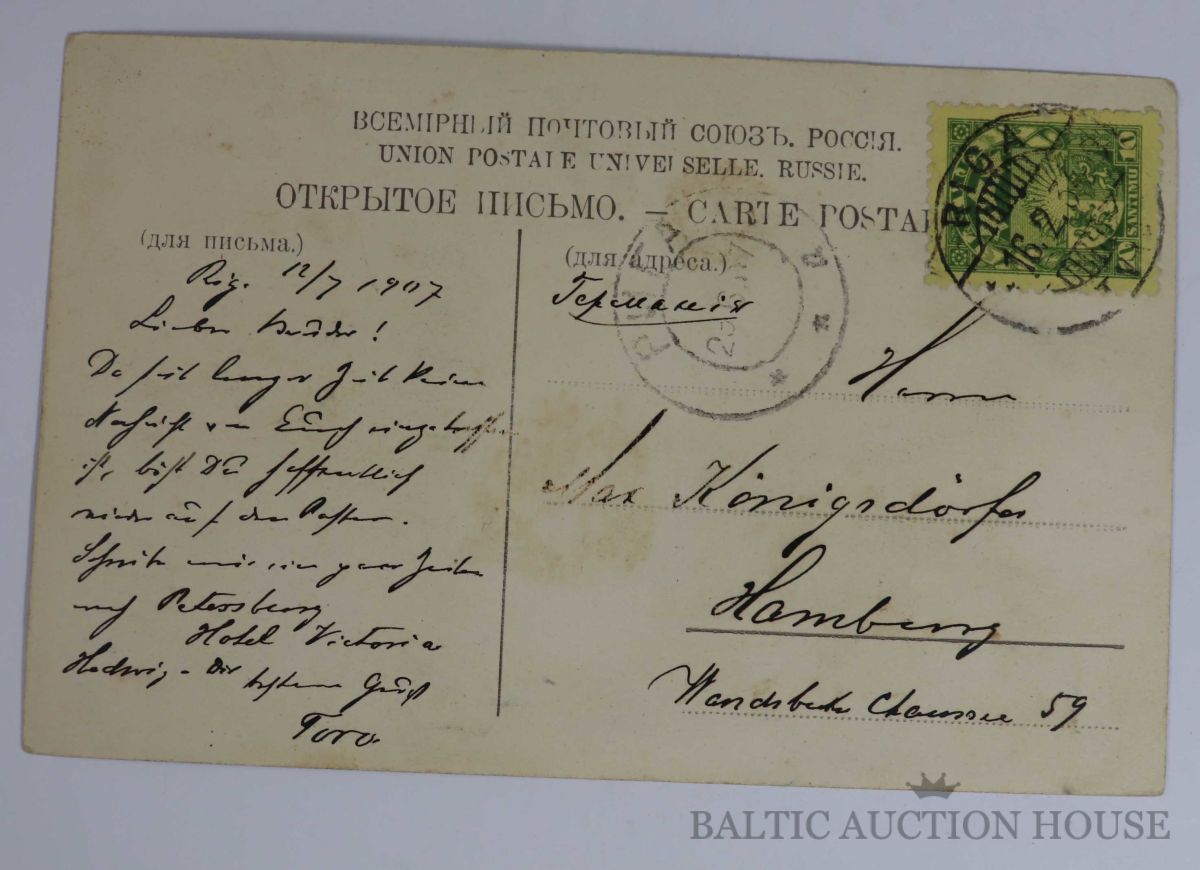 ВСЕМІРНЫЙ ПОЧТОВЫЙ СОЮЗЪ. РОССІЯ.
UNION POSTALE UNIVERSELLE. RUSSIE.
ОТКРЫТОЕ ПИСЬМО. — CARTE POSTAL
(для письма.)
Rig. 12/7 1907
Lieber Bruder!
Da seit langer Zeit keine
Nachricht von Euch eingetroffen
ist, bist Du hoffentlich
wieder auf dem Posten.
Schreibe mir ein paar Zeilen
nach Petersburg
Hotel Victoria
Hedwig - Dir besten Gruß
Toro
(для адреса.)
Германія
Herrn
Max Königsdörfer
Hamburg
Wandsbeker Chaussee 59
РИГА
RIGA
16.2
10
SANTIMU
10
BALTIC AUCTION HOUSE